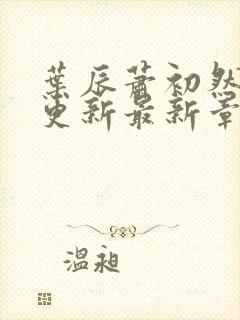 葉辰蕭初然
更新最新章
溫昶